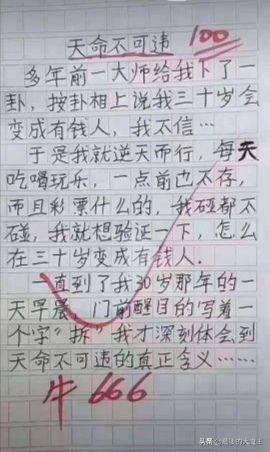 天命不可违 100
多年前一大师给我卜了一
卦，按卦相上说我三十岁会
变成有钱人，我不信…
于是我就逆天而行，每天
吃喝玩乐，一点前也不存，
而且彩票什么的，我碰都不
碰，我就想验证一下，怎么
在三十岁变成有钱人.
一直到了我30岁那年的一
天早晨，门前醒目的写着一
个字"拆"，我才深刻体会到
天命不可违的真正含义……
牛666